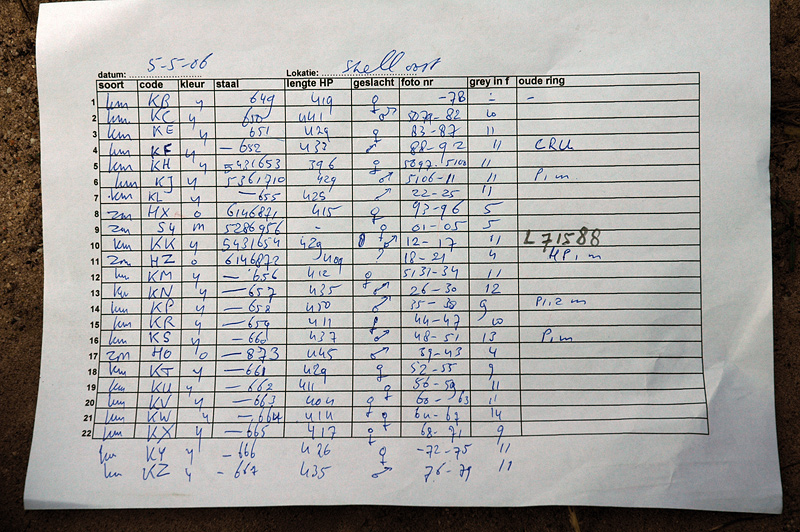 datum: 5-5-06 Lokatie: Shell oost
soort code kleur staal lengte HP geslacht foto nr grey in f oude ring
1 km KB y 649 419 ♀ -78 - -
2 km KC y 650 441 ♂ 5079-82 10
3 km KE y 651 429 ♀ 83-87 11
4 km KF y -652 437 ♂ 88-92 11 CRU
5 km KH y 5431653 396 ♀ 5097-5100 11
6 km KJ y 5361710 429 ♂ 5106-11 11 P, m
7 km KL y -655 425 ♂ 22-25 11
8 zm HX o 6146871 415 ♀ 93-96 5
9 zm S4 m 5286956 - ♀ 01-05 5
10 km KK y 5431654 429 ♂ 12-17 11 L71588
11 zm HZ o 6146872 409 18-21 4 HP, m
12 km KM y -656 412 ♀ 5131-34 11
13 km KN y -657 435 ♂ 26-30 12
14 km KP y -658 450 ♂ 35-38 9 P, 2 m
15 km KR y -659 411 ♀ 44-47 10
16 km KS y -660 437 ♂ 48-51 13 P, m
17 zm HO o -873 445 ♂ 39-43 4
18 km KT y -661 429 ♀ 52-55 9
19 km KU y -662 411 ♀ 56-59 11
20 km KV y -663 404 ♀ 60-63 11
21 km KW y -664 414 ♀ 64-67 14
22 km KX y -665 417 ♀ 68-71 9
km KY y -666 426 ♀ -72-75 11
km KZ y -667 435 ♂ 76-79 11